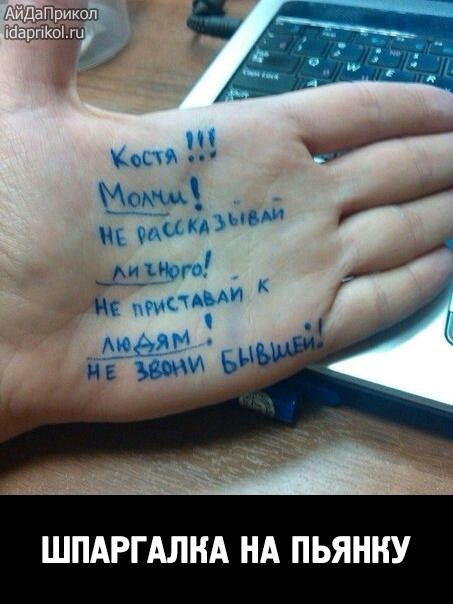 АйДаПрикол
idaprikol.ru
Костя !!!
Молчи!
НЕ РАССКАЗЫВАЙ
личного!
НЕ ПРИСТАВАЙ К
людям!
НЕ ЗВОНИ БЫВШЕЙ!
ШПАРГАЛКА НА ПЬЯНКУ